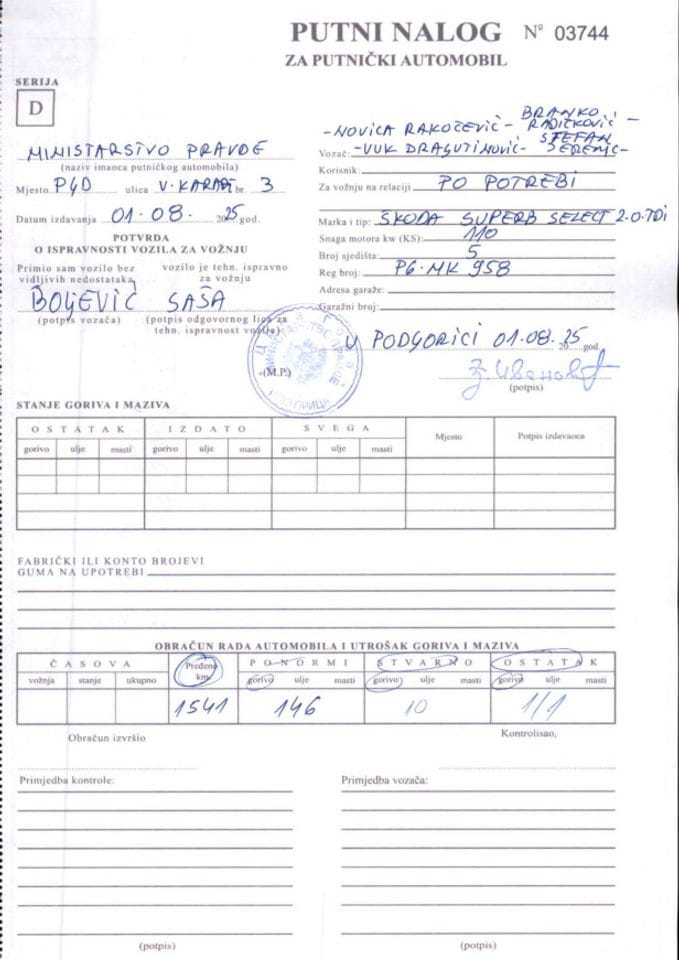 PUTNI NALOG Nº 03744
ZA PUTNIČKI AUTOMOBIL
SERIJA
D
MINISTARSTVO PRAVDE
(naziv imaoca putničkog automobila)
Mjesto PGD ulica V. KARADŽ br. 3
Datum izdavanja 01.08. 2025 god.
POTVRDA
O ISPRAVNOSTI VOZILA ZA VOŽNJU
Primio sam vozilo bez vidljivih nedostataka
vozilo je tehn. ispravno za vožnju
BOLJEVIĆ SAŠA
(potpis vozača) (potpis odgovornog lica za tehn. ispravnost vozila)
BRANKO
-NOVICA RAKOČEVIĆ- RADIČKOVIĆ-
STEFAN
Vozač: -VUK DRAGUTINOVIĆ- JEREMIĆ-
Korisnik:
Za vožnju na relaciji PO POTREBI
Marka i tip: ŠKODA SUPERB SELECT 2.0.TDI
Snaga motora kw (KS): 110
Broj sjedišta: 5
Reg broj: PG·MK 958
Adresa garaže:
Garažni broj:
U PODGORICI 01.08.2025 god.
(M.P.)
(potpis)
STANJE GORIVA I MAZIVA
OSTATAK IZDATO SVEGA Mjesto Potpis izdavaoca
gorivo ulje masti gorivo ulje masti gorivo ulje masti
FABRIČKI ILI KONTO BROJEVI
GUMA NA UPOTREBI
OBRAČUN RADA AUTOMOBILA I UTROŠAK GORIVA I MAZIVA
ČASOVA Pređeno km PO NORMI STVARNO OSTATAK
vožnja stanje ukupno gorivo ulje masti gorivo ulje masti gorivo ulje masti
1541 146 10 1/1
Obračun izvršio Kontrolisao,
Primjedba kontrole: Primjedba vozača:
(potpis) (potpis)